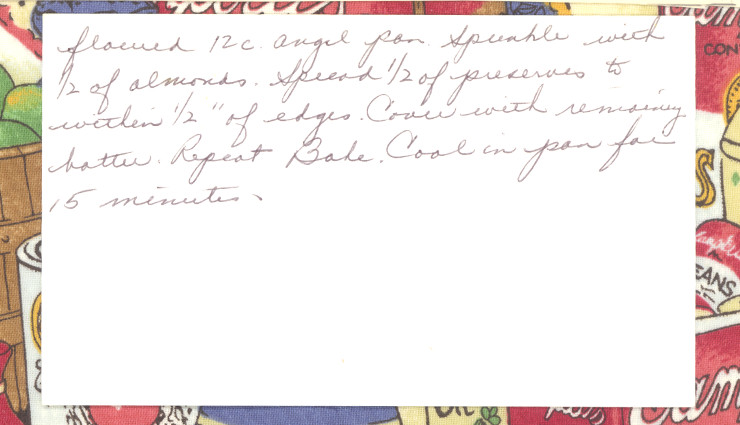 floured 12 c. angel pan. Sprinkle with
1/2 of almonds. Spread 1/2 of preserves to
within 1/2 " of edges. Cover with remaining
batter. Repeat Bake. Cool in pan for
15 minutes.
CON
EANS